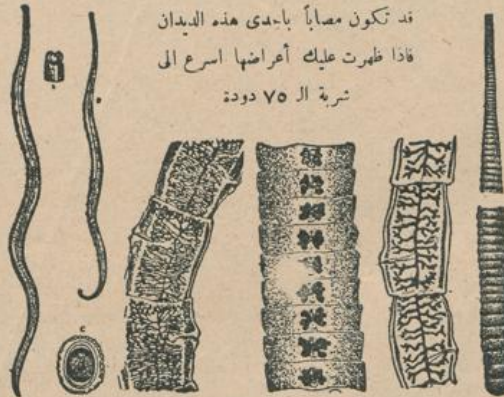 قد تكون مصاباً باحدى هذه الديدان
فاذا ظهرت عليك أعراضها اسرع الى
شربة الـ ٧٥ دودة